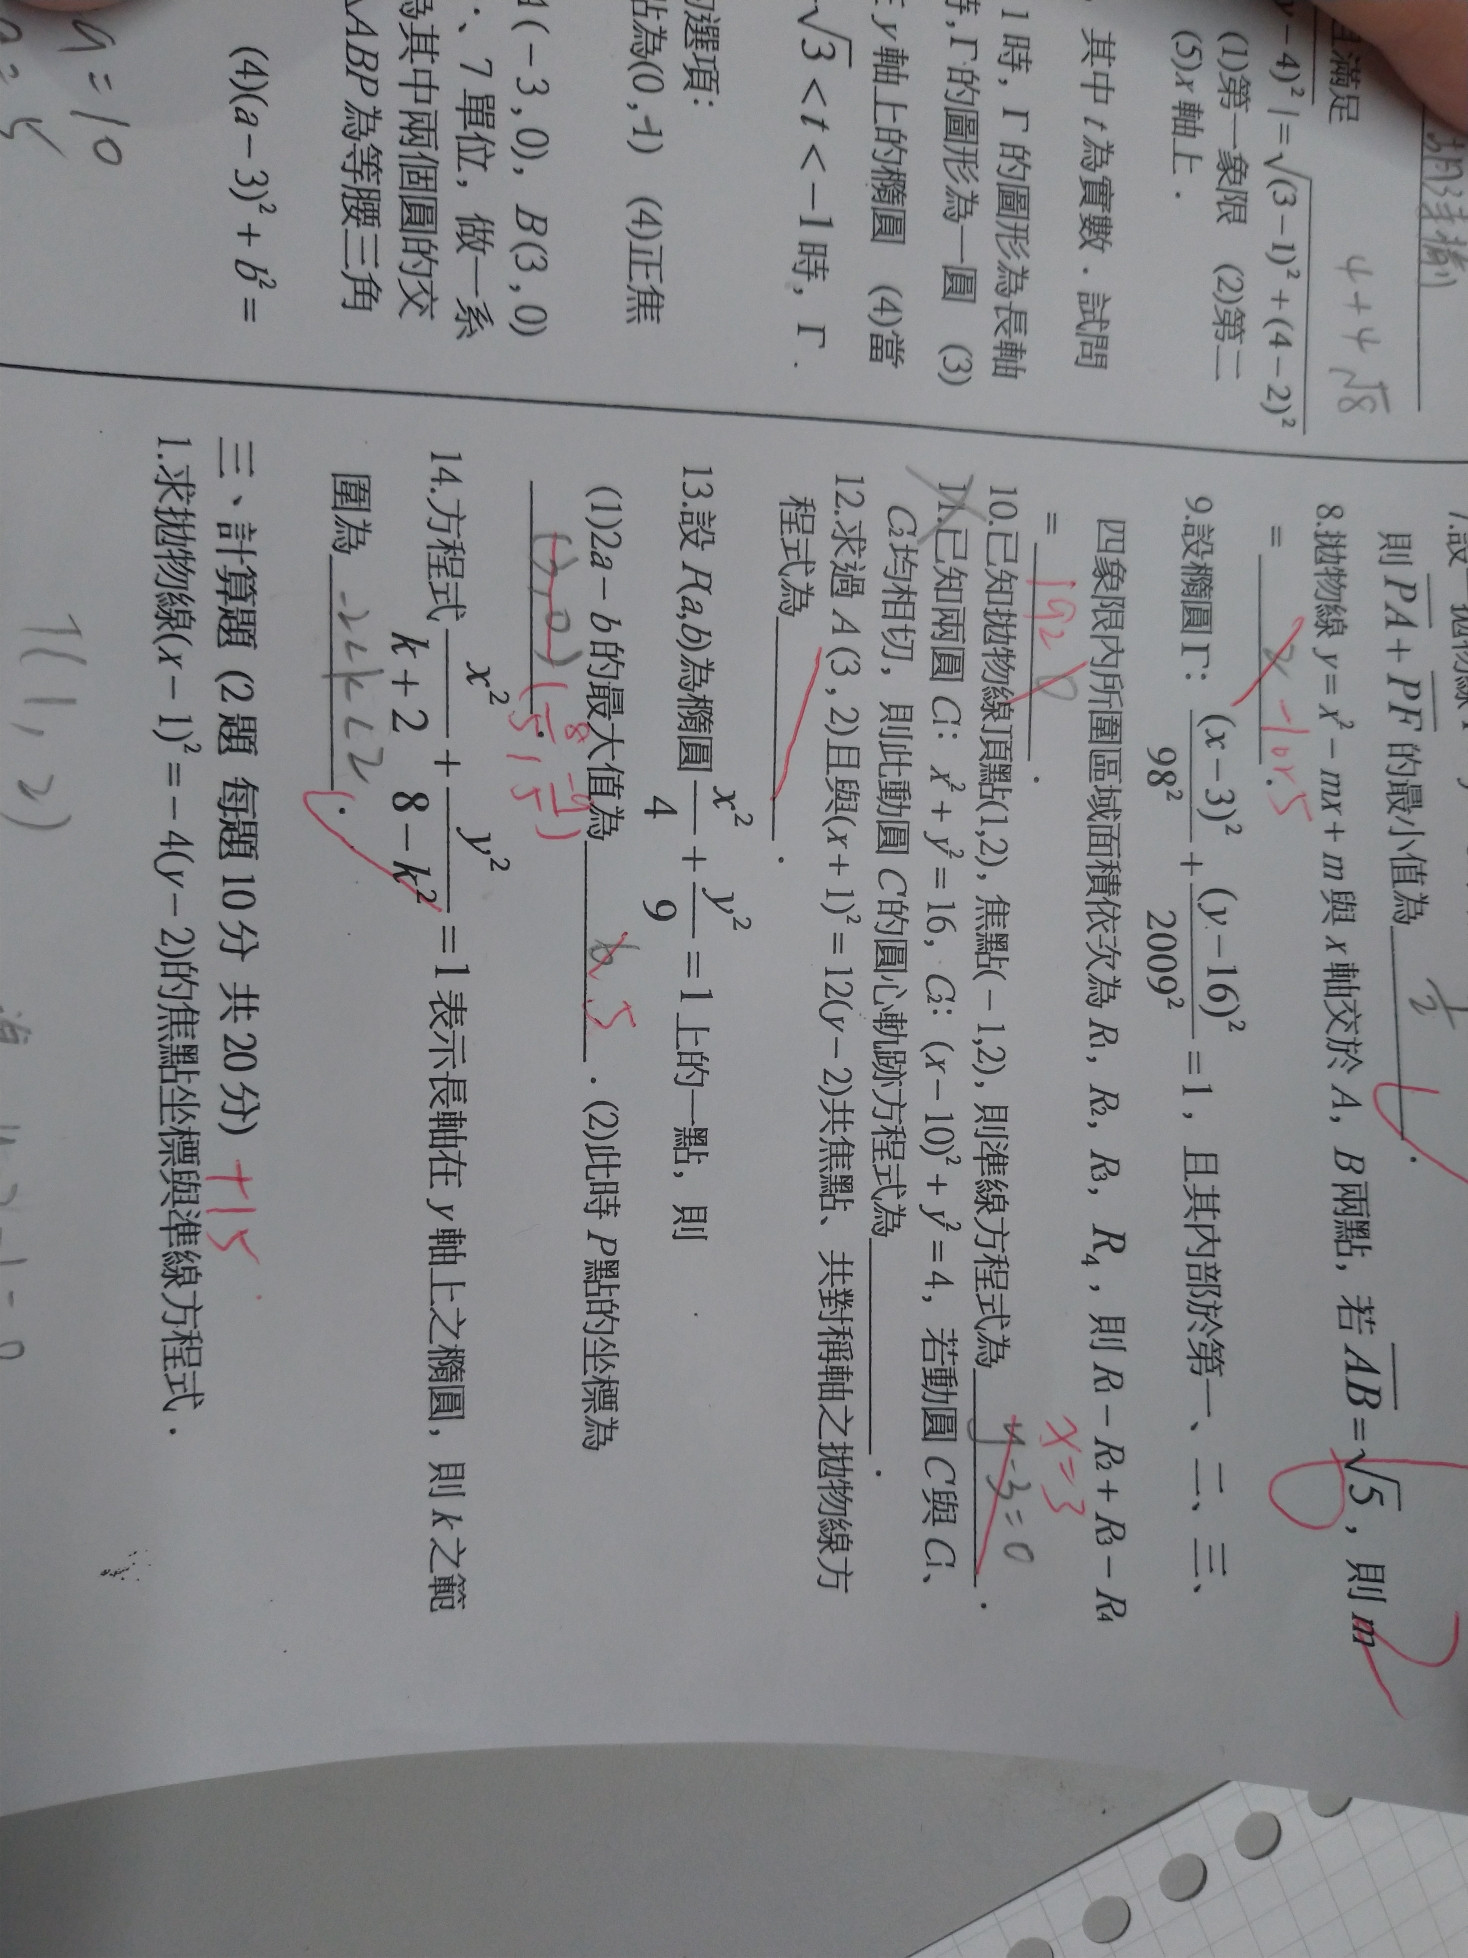 4+4√8
且滿足
y-4)² |=√(3-1)²+(4-2)²
(1)第一象限 (2)第二
(5)x軸上.
其中 t 為實數.試問
1時,Γ的圖形為長軸
時,Γ的圖形為一圓 (3)
y軸上的橢圓 (4)當
-√3<t<-1時,Γ.
的選項:
點為(0,-1) (4)正焦
A(-3,0),B(3,0)
、7單位,做一系
為其中兩個圓的交
△ABP為等腰三角
(4)(a-3)²+b²=
9=10
7.設一拋物線
則PA+PF的最小值為 1/2 .
8.拋物線 y=x²-mx+m與x軸交於A,B兩點,若AB=√5,則m
= -1or5.
9.設橢圓Γ:(x-3)²/98²+(y-16)²/2009²=1,且其內部於第一、二、三、
四象限內所圍區域面積依次為R1,R2,R3,R4,則R1-R2+R3-R4
= 192 .
10.已知拋物線頂點(1,2),焦點(-1,2),則準線方程式為 y-3=0 .
x=3
11.已知兩圓C1:x²+y²=16,C2:(x-10)²+y²=4,若動圓C與C1、
C2均相切,則此動圓C的圓心軌跡方程式為 .
12.求過A(3,2)且與(x+1)²=12(y-2)共焦點、共對稱軸之拋物線方
程式為 .
13.設P(a,b)為橢圓x²/4+y²/9=1上的一點,則
(1)2a-b的最大值為 6 5 .(2)此時P點的坐標為
(8/5,-9/5)
14.方程式x²/(k+2)+y²/(8-k²)=1表示長軸在y軸上之橢圓,則k之範
圍為 -2<k<2 .
三、計算題 (2題 每題10分 共20分) +15
1.求拋物線(x-1)²=-4(y-2)的焦點坐標與準線方程式.
(1,2)